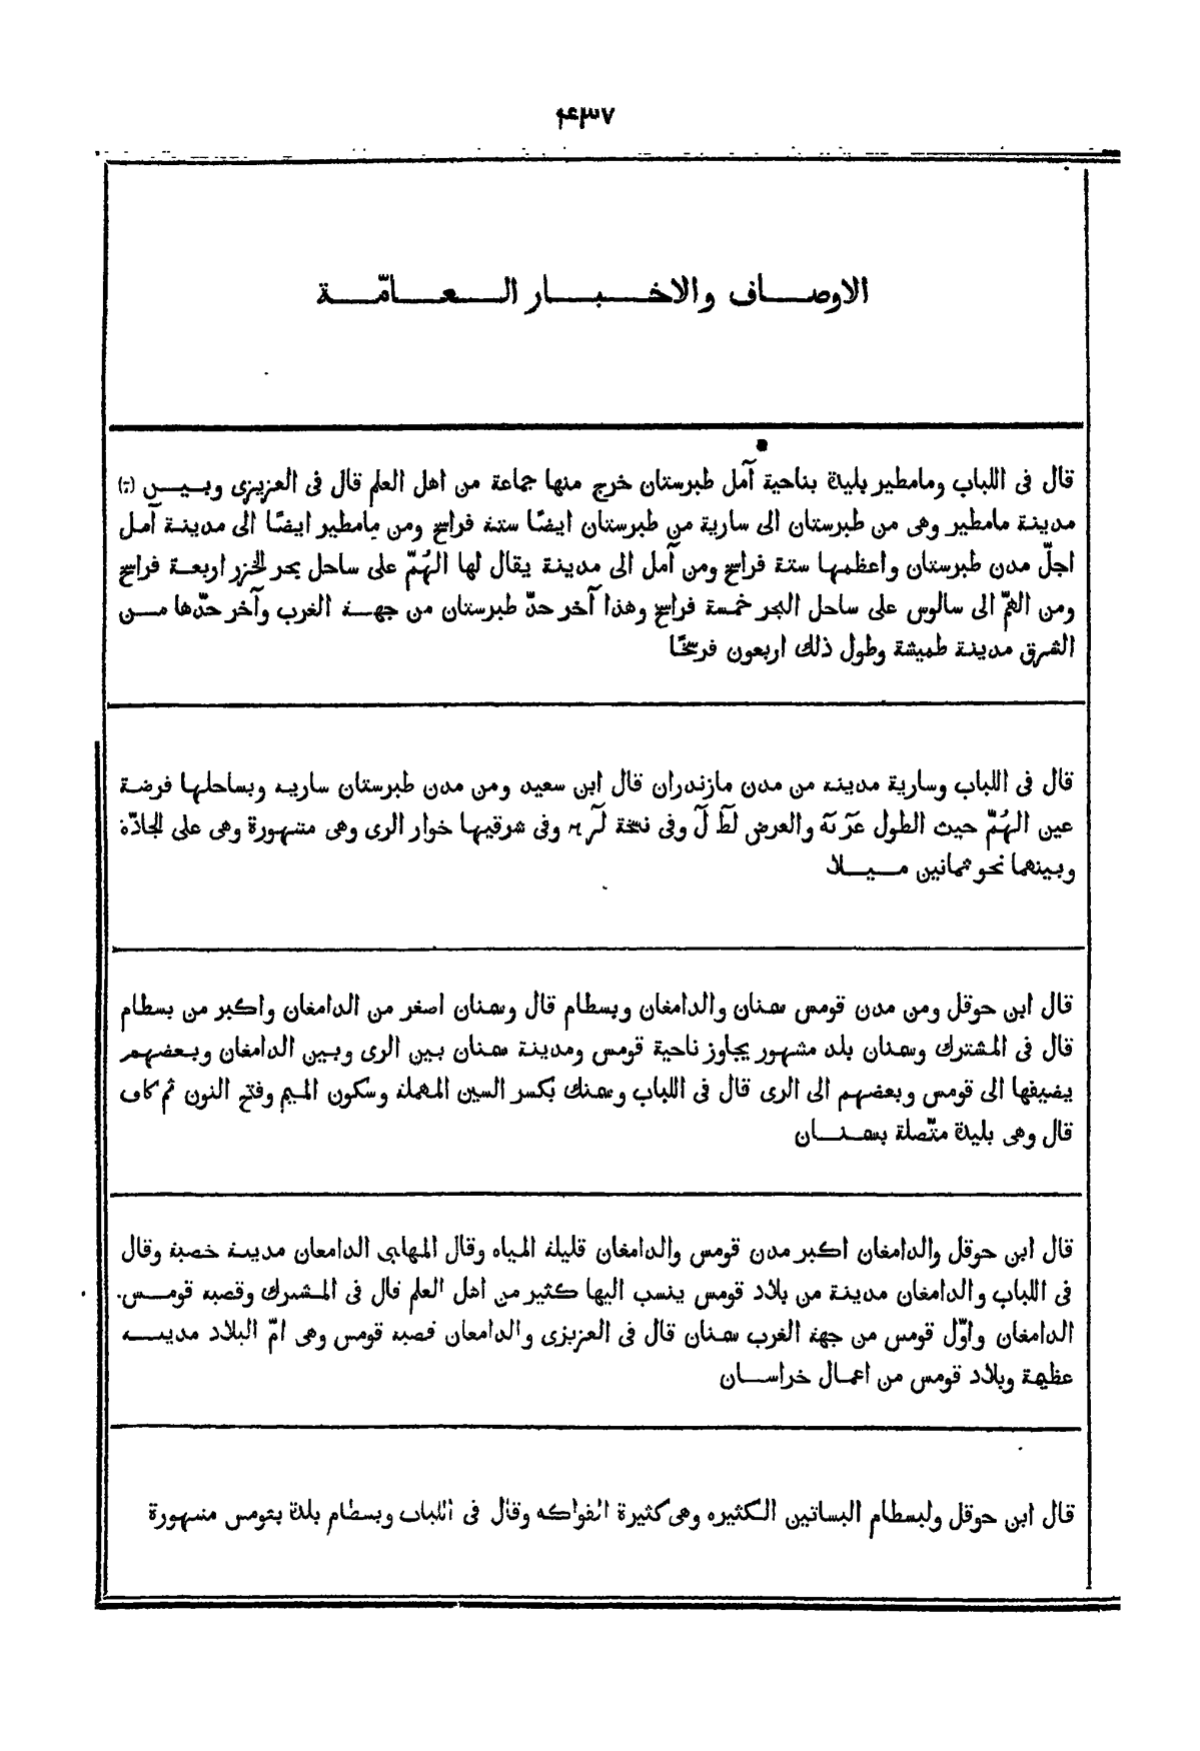 ۴۳۷
الاوصاف والاخبار العامّة
قال فى اللباب ومامطير بليدة بناحية آمل طبرستان خرج منها جماعة من اهل العلم قال فى العزيزى وبين
مدينة مامطير وهى من طبرستان الى سارية من طبرستان ايضًا ستة فراسخ ومن مامطير ايضًا الى مدينة آمل
اجلّ مدن طبرستان واعظمها ستة فراسخ ومن آمل الى مدينة يقال لها الهُمّ على ساحل بحر الخزر اربعة فراسخ
ومن الهمّ الى سالوس على ساحل البحر خمسة فراسخ وهذا آخر حدّ طبرستان من جهة الغرب وآخر حدّها من
الشرق مدينة طميشة وطول ذلك اربعون فرسخًا
قال فى اللباب وسارية مدينة من مدن مازندران قال ابن سعيد ومن مدن طبرستان سارية وبساحلها فرضة
عين الهُمّ حيث الطول عَرَ نَه والعرض لَط لَ وفى نسخة لَر وفى شرقيها خوار الرى وهى مشهورة وهى على الجادّة
وبينهما نحو ثمانين ميلا
قال ابن حوقل ومن مدن قومس سمنان والدامغان وبسطام قال وسمنان اصغر من الدامغان واكبر من بسطام
قال فى المشترك وسمنان بلد مشهور يجاوز ناحية قومس ومدينة سمنان بين الرى وبين الدامغان وبعضهم
يضيفها الى قومس وبعضهم الى الرى قال فى اللباب وسمنك بكسر السين المهملة وسكون الميم وفتح النون ثم كاف
قال وهى بليدة متّصلة بسمنان
قال ابن حوقل والدامغان اكبر مدن قومس والدامغان قليلة المياه وقال المهلبى الدامغان مدينة خصبة وقال
فى اللباب والدامغان مدينة من بلاد قومس ينسب اليها كثير من اهل العلم قال فى المشترك وقصبة قومس
الدامغان واوّل قومس من جهة الغرب سمنان قال فى العزيزى والدامغان قصبة قومس وهى امّ البلاد مدينة
عظيمة وبلاد قومس من اعمال خراسان
قال ابن حوقل ولبسطام البساتين الكثيره وهى كثيرة الفواكه وقال فى اللباب وبسطام بلدة بقومس مشهورة